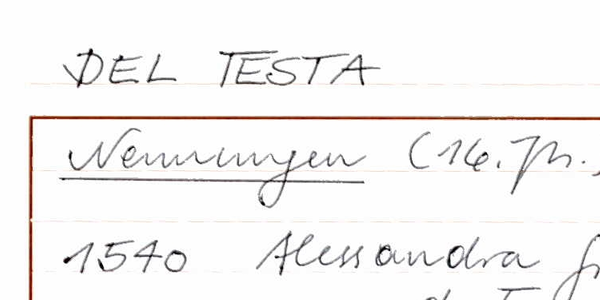 DEL TESTA
Nennungen (16. Jh.)
1540 Alessandra